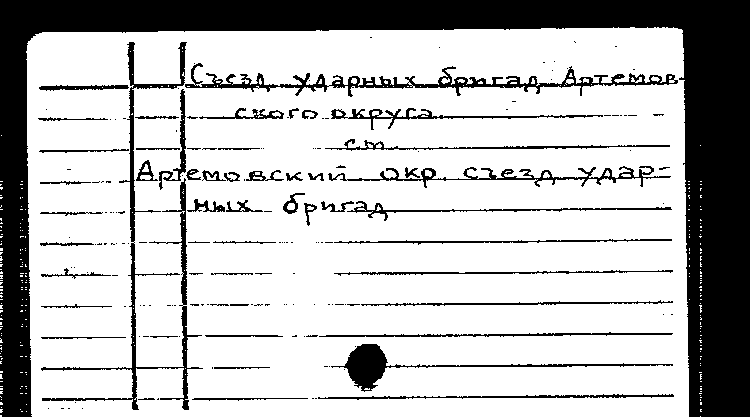 Съезд ударных бригад Артемов-
ского округа
см.
Артемовский окр. съезд удар-
ных бригад